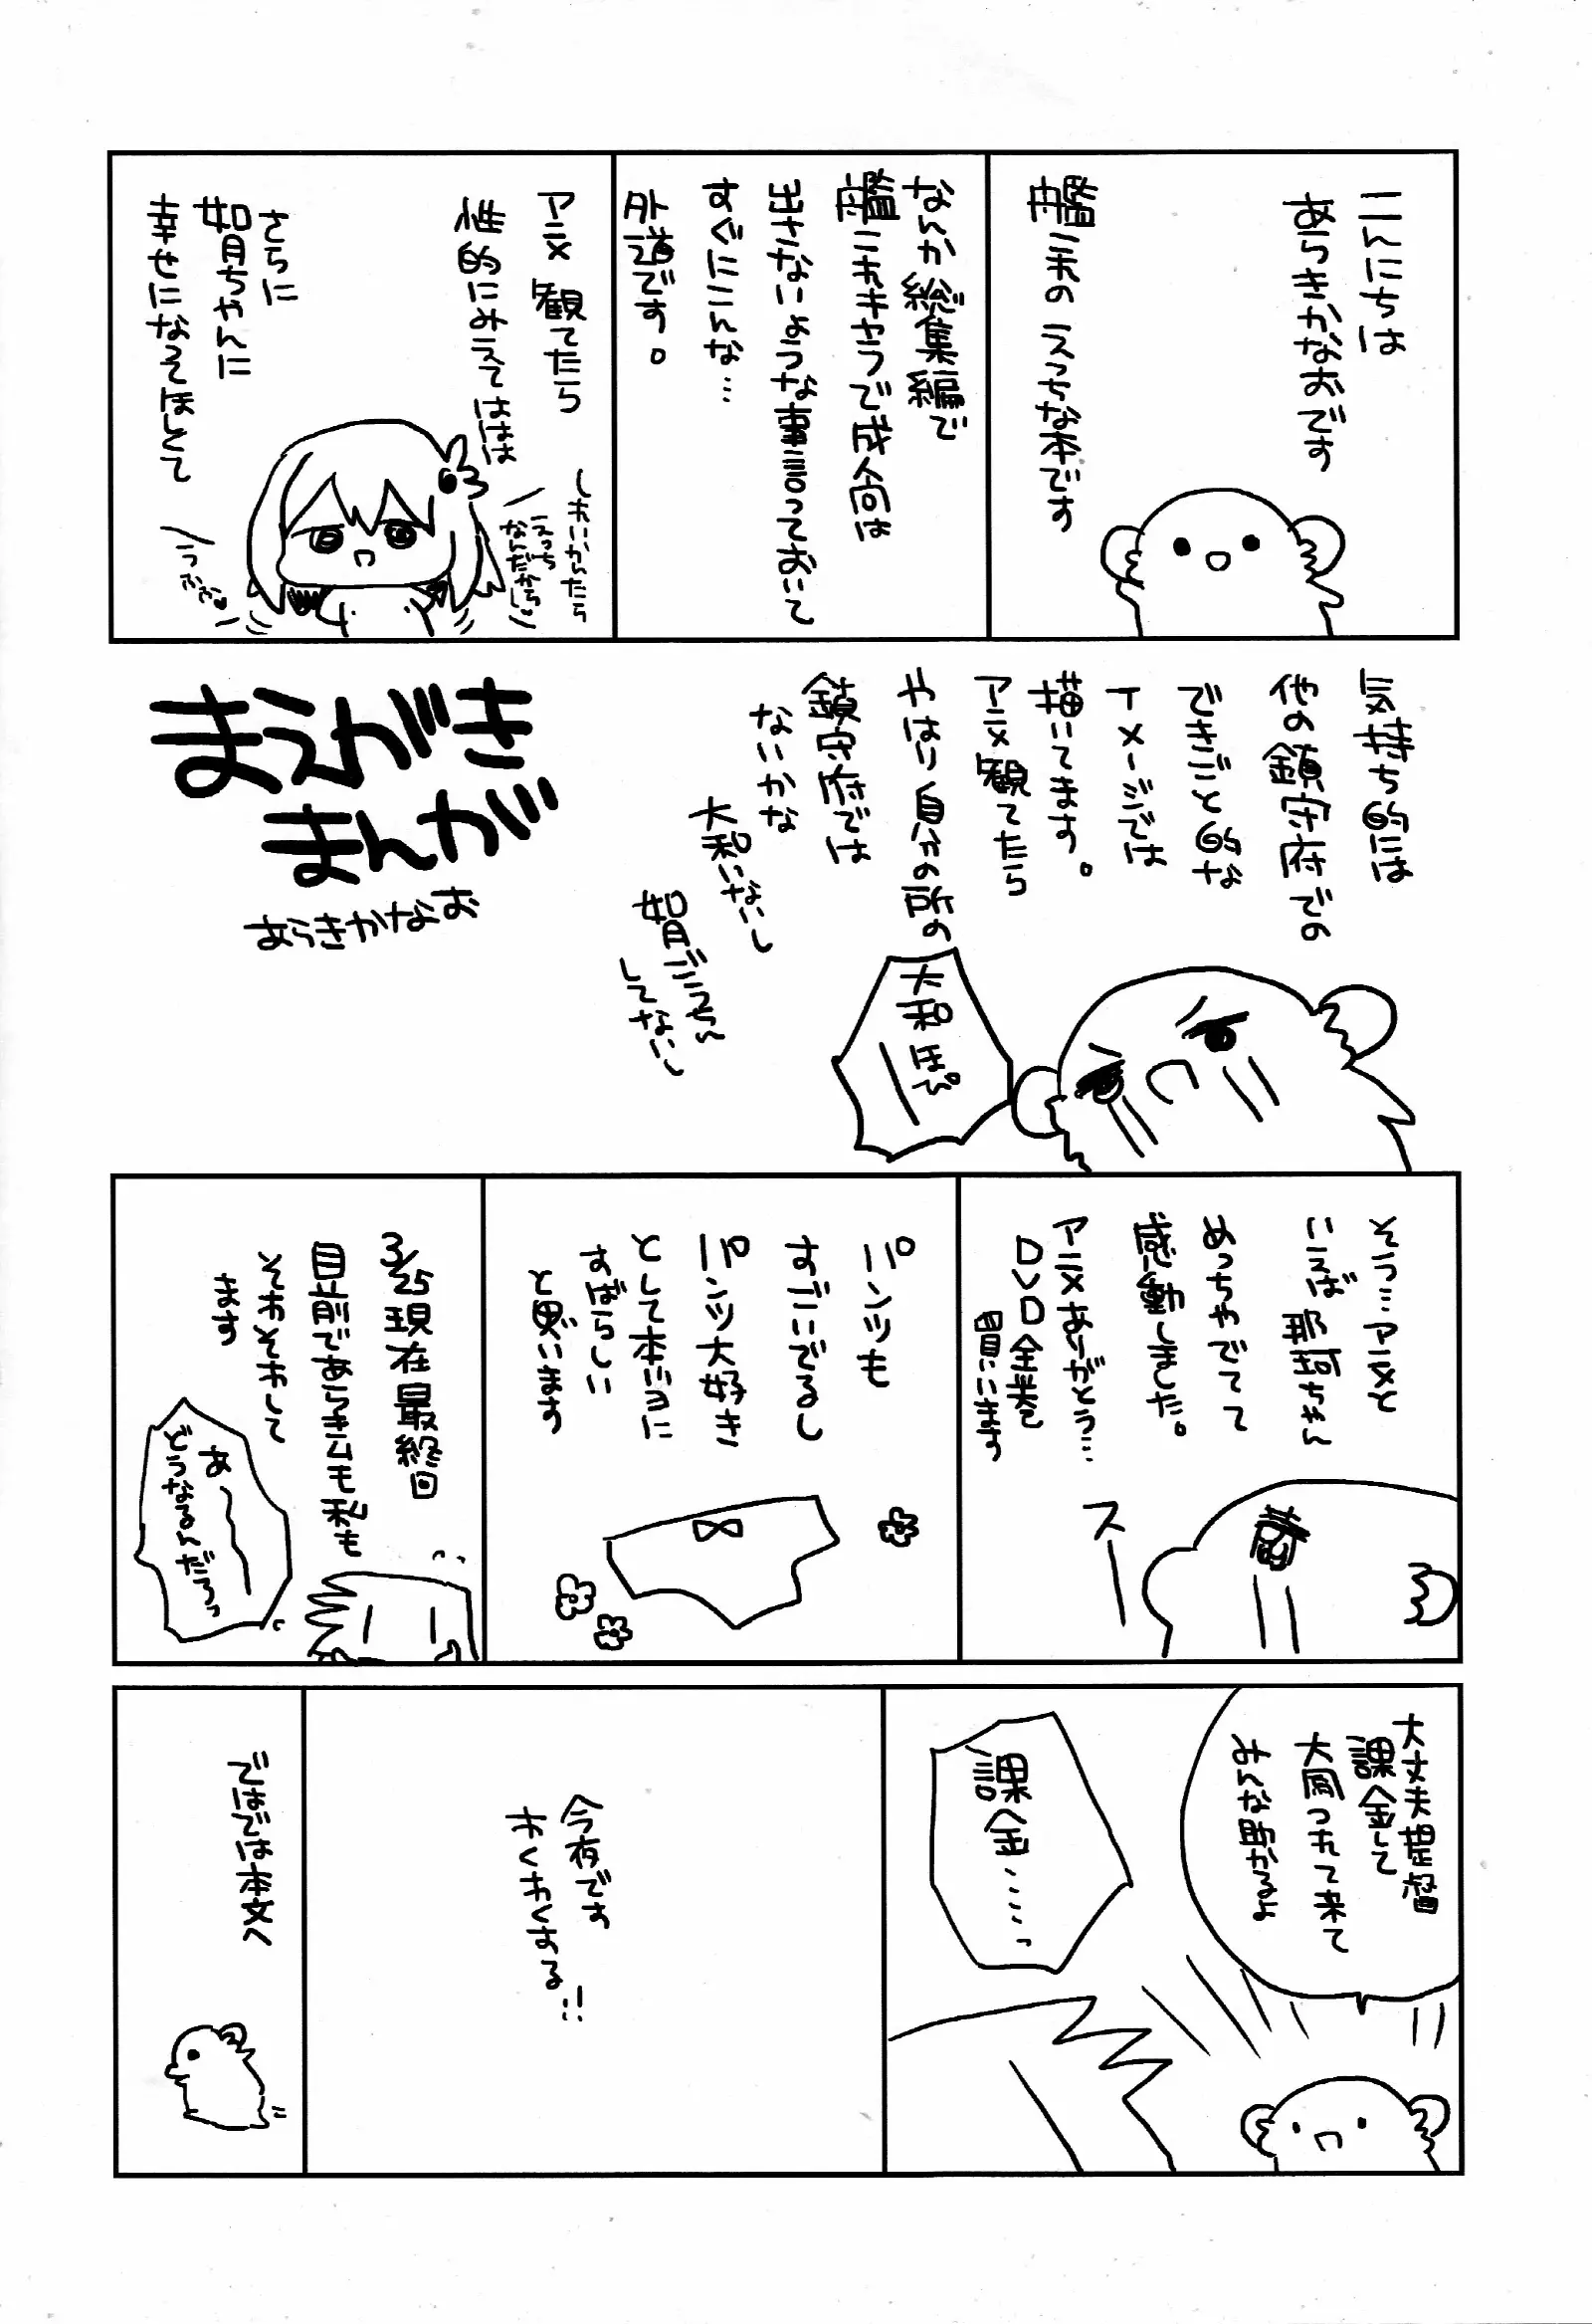 こんにちは
あらきかなおです
艦これの えっちな本です
なんか総集編で
艦これきさつで成人向は
出さないような事言っておいて
すぐにこんな…
外道です。
アニメ観てたら
性的にみえてははは
さらに
如月ちゃんに
幸せになってほしくて
えっち
なんだからし♥
うふふ♥
まえがき
まんが
あらきかなお
気持ち的には
他の鎮守府での
できごと的な
イメージでは
描いてます。
アニメ観てたら
やはり自分の所の
鎮守府では
ないかな
大和いないし
如月ごうちん
してないし
大和ほぴ
そう…アニメと
いえば 那珂ちゃん
めっちゃでてて
感動しました。
アニメありがとう…
DVD全巻
買います
スー
パンツも
すごいでるし
パンツ大好き
として本当に
すばらしい
と思います
3/25現在最終回
目前であらきんも私も
そわそわして
ます
あ〜〜
どうなるんだろうっ
大丈夫提督
課金して
大和つれて来て
みんな助かるよ
課金……っ
今夜です
わくわくする!!
ではでは本文へ